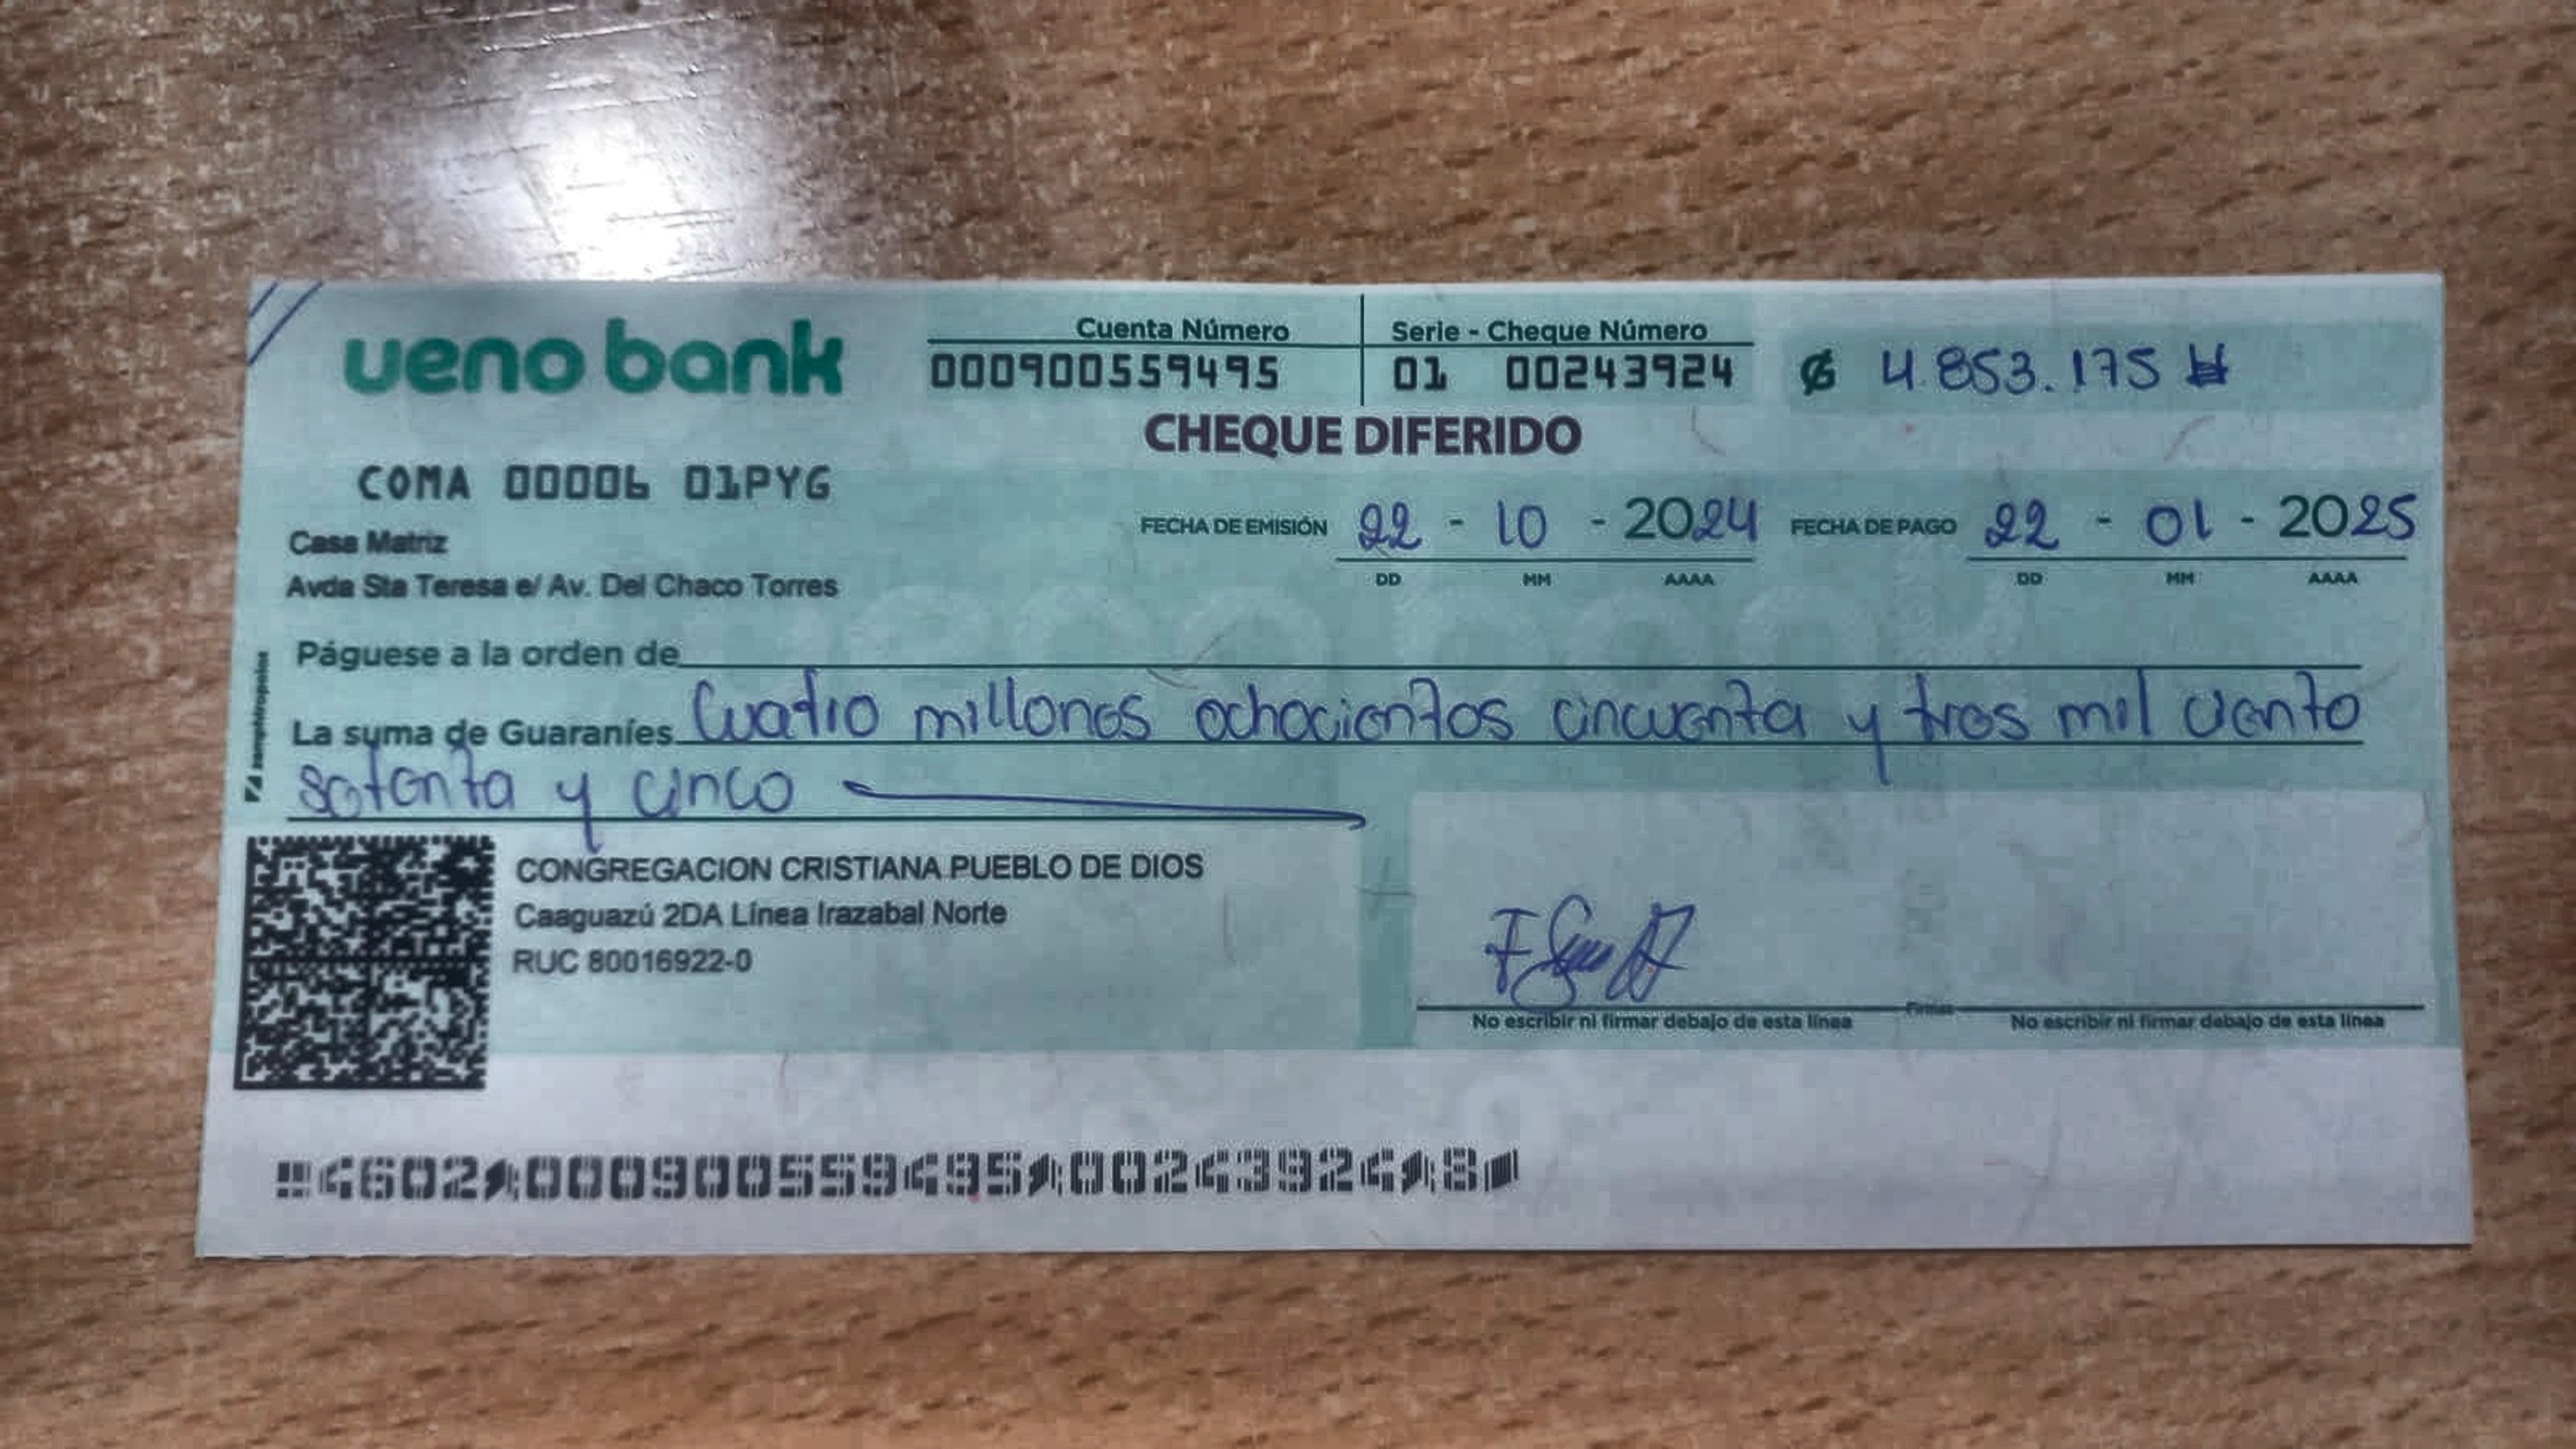 ueno bank
Cuenta Número
Serie - Cheque Número
000900559495
01 00243924
₲ 4.853.175
CHEQUE DIFERIDO
COMA 00006 01PYG
Casa Matriz
Avda Sta Teresa e/ Av. Del Chaco Torres
FECHA DE EMISIÓN 22 - 10 - 2024 FECHA DE PAGO 22 - 01 - 2025
DD MM AAAA DD MM AAAA
Páguese a la orden de
La suma de Guaraníes Cuatro millones ochocientos cincuenta y tres mil ciento
setenta y cinco
CONGREGACION CRISTIANA PUEBLO DE DIOS
Caaguazú 2DA Línea Irazabal Norte
RUC 80016922-0
Firmas
No escribir ni firmar debajo de esta línea No escribir ni firmar debajo de esta línea
4602 000900559495 00243924 8